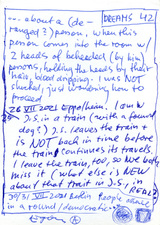 ... about a (de-
ranged?) person, when this
person comes into the room w/
2 heads of beheaded (by him)
persons, holding the heads by their
hair, blood dripping. I was NOT
shocked, just wondering how to
proceed
DREAMS 42
26 VII 2021 Eppelheim. I am w/
J.S. in a train (with a found
dog!) J.S. leaves the train +
is NOT back in time before
the train continues its travels.
I leave the train, too, so we both
miss it (what else is NEW
about that trait in J.S., REAL?)
30/31 VII 2021 Berlin People dance
in a round / democratic